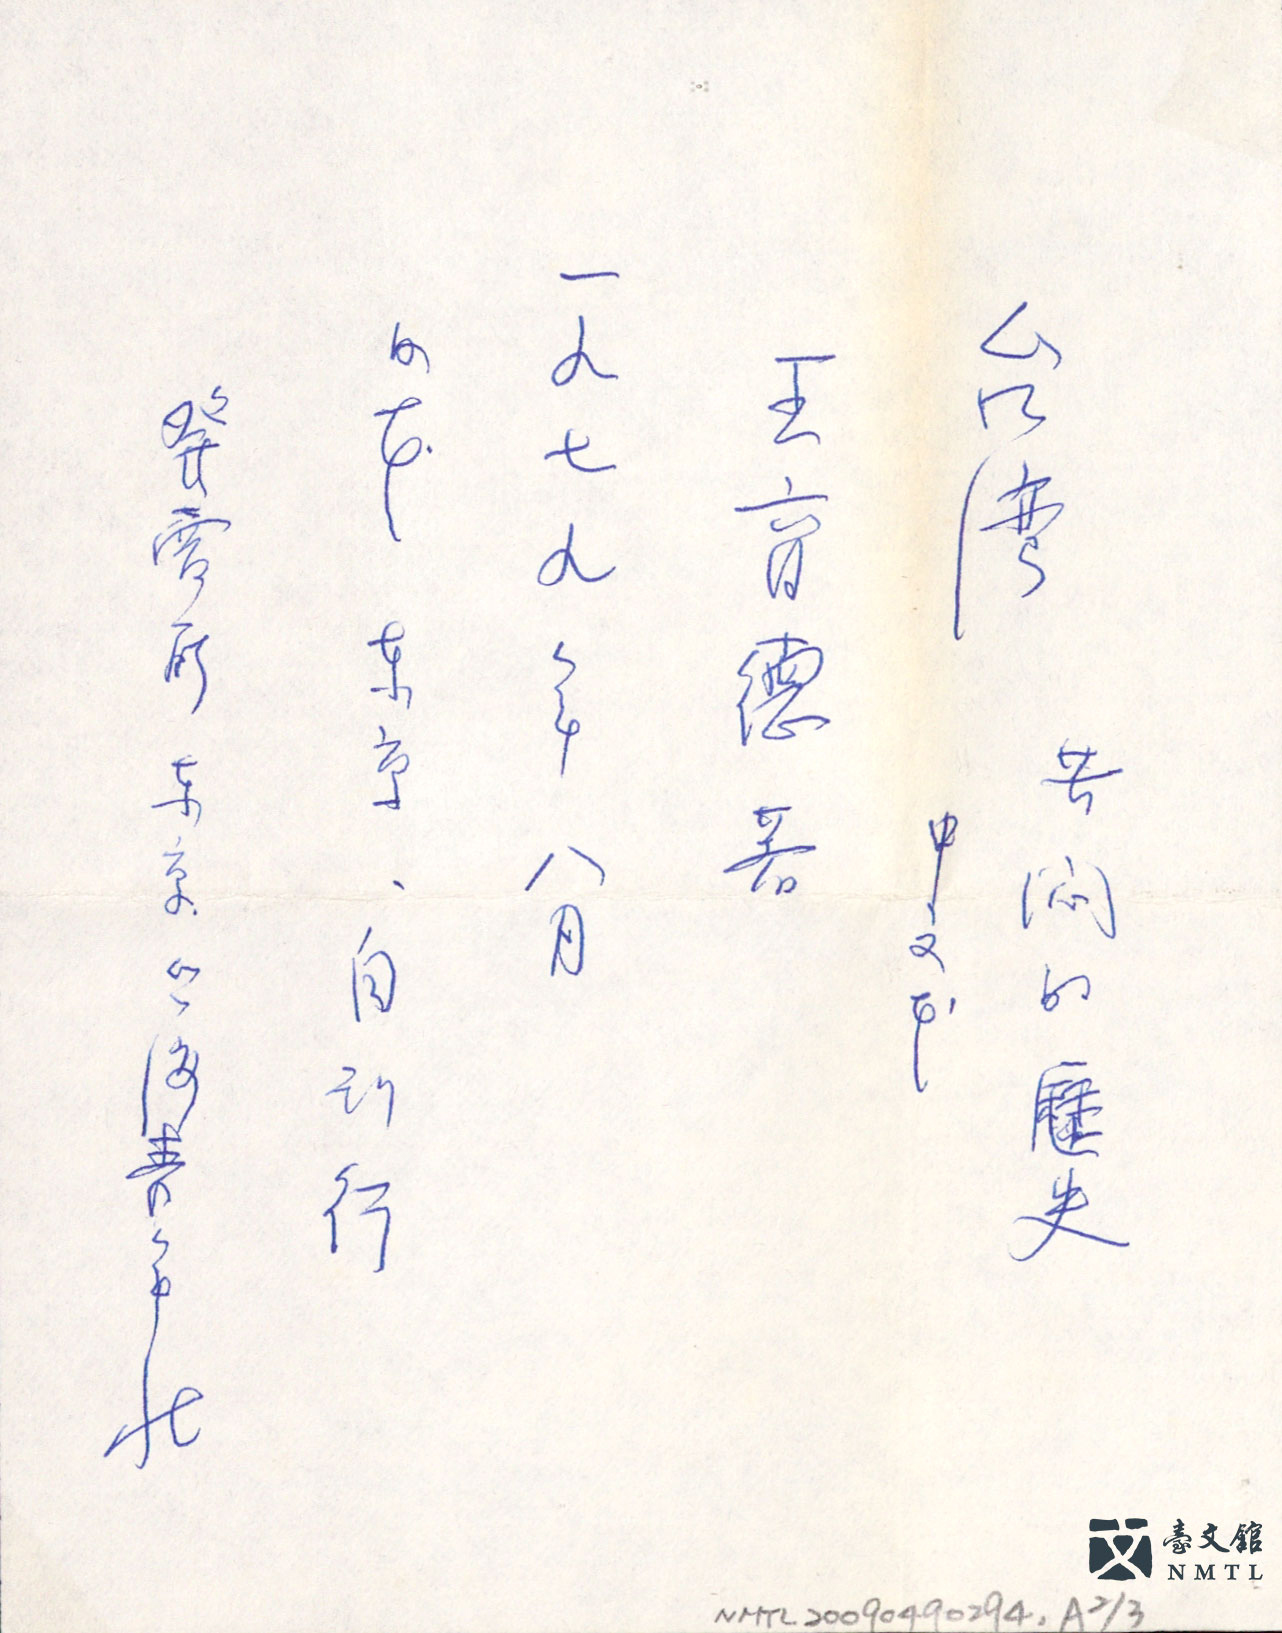 台湾 苦悶的歷史
中文本
王育德著
一九七九年八月
日本 東京、自刊行
發賣所 東京 台湾青年社
臺文館
NMTL
NMTL20090490294. A2/3